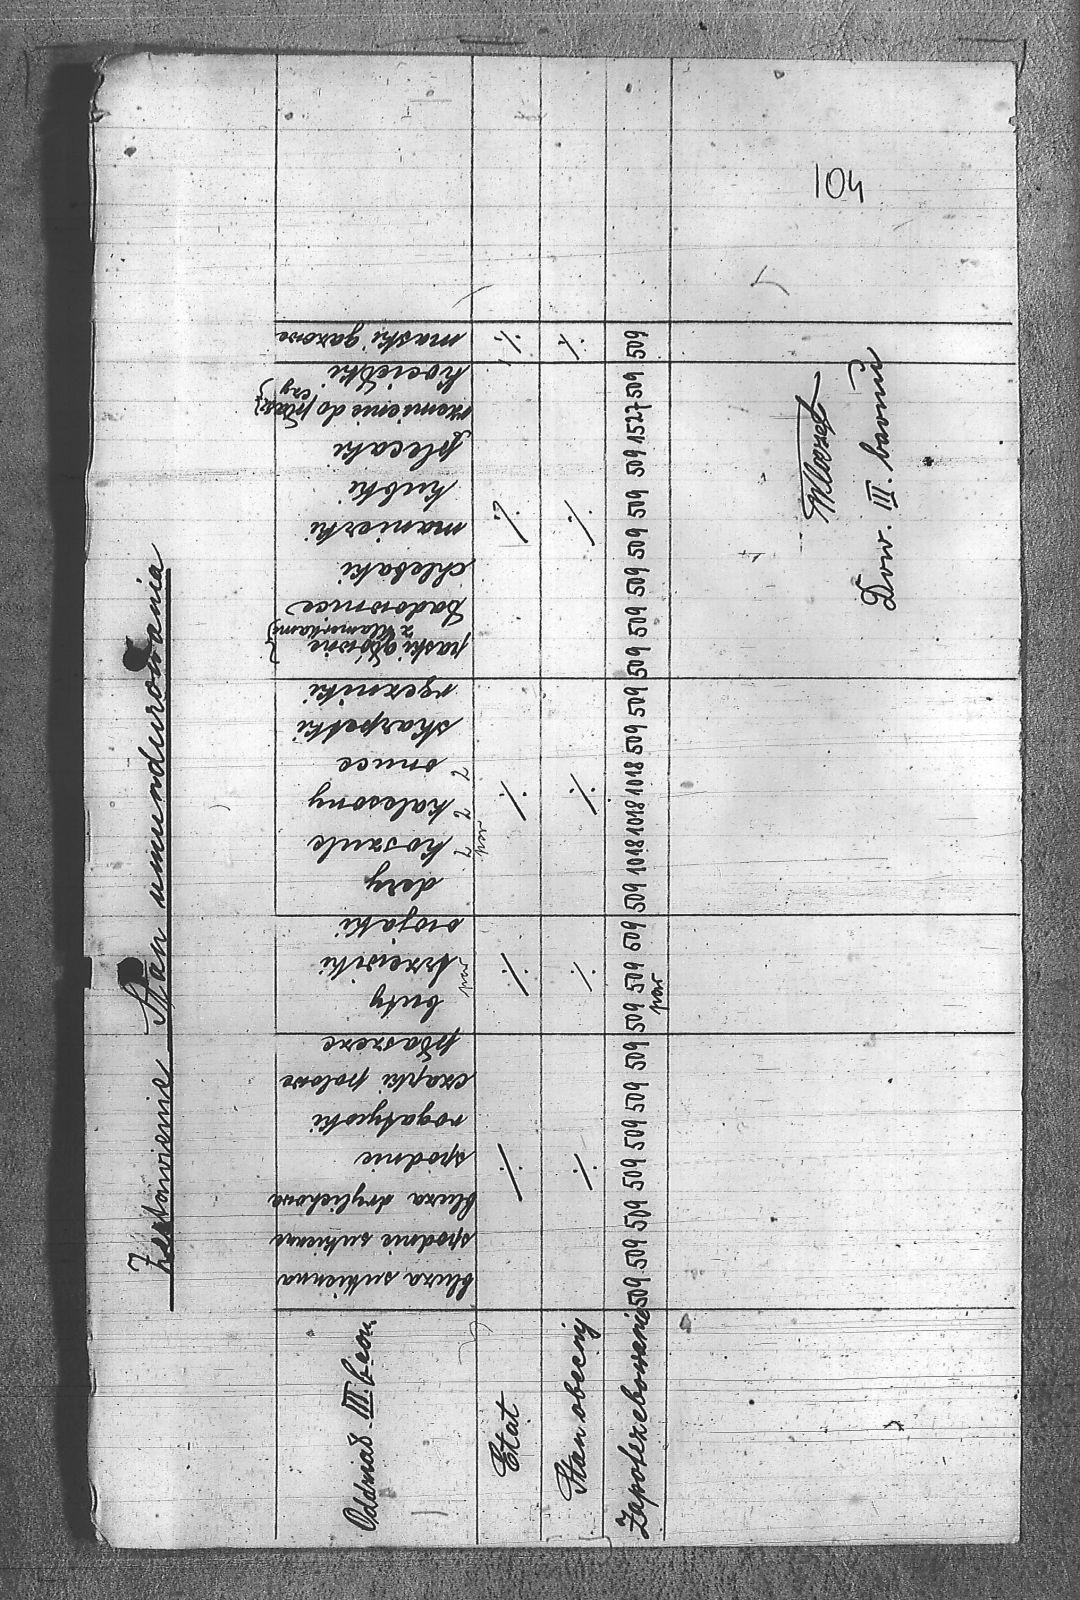 104
Zestawienie Stan umundurowania
Oddział III. baon.
bluza sukienna
spodnie sukienne
bluza drelichowa
spodnie
rogatywki
czapki polowe
płaszcze
buty
trzewiki
par
owijaki
dery
koszule
kalesony
onuce
par
skarpetki
ręczniki
paski główne
z klamerkami
ładownice
chlebaki
manierki
kubki
plecaki
rzemienie do płasz
czy
kociołki
maski gazowe
Etat ./. ./. ./. ./. ./.
Stan obecny ./. ./. ./. ./. ./.
Zapotrzebowanie 509 509 509 509 509 509 509 509 509 509 509 1018 1018 1018 509 509 509 509 509 509 509 509 1527 509 509
par
Dow. III. baonu